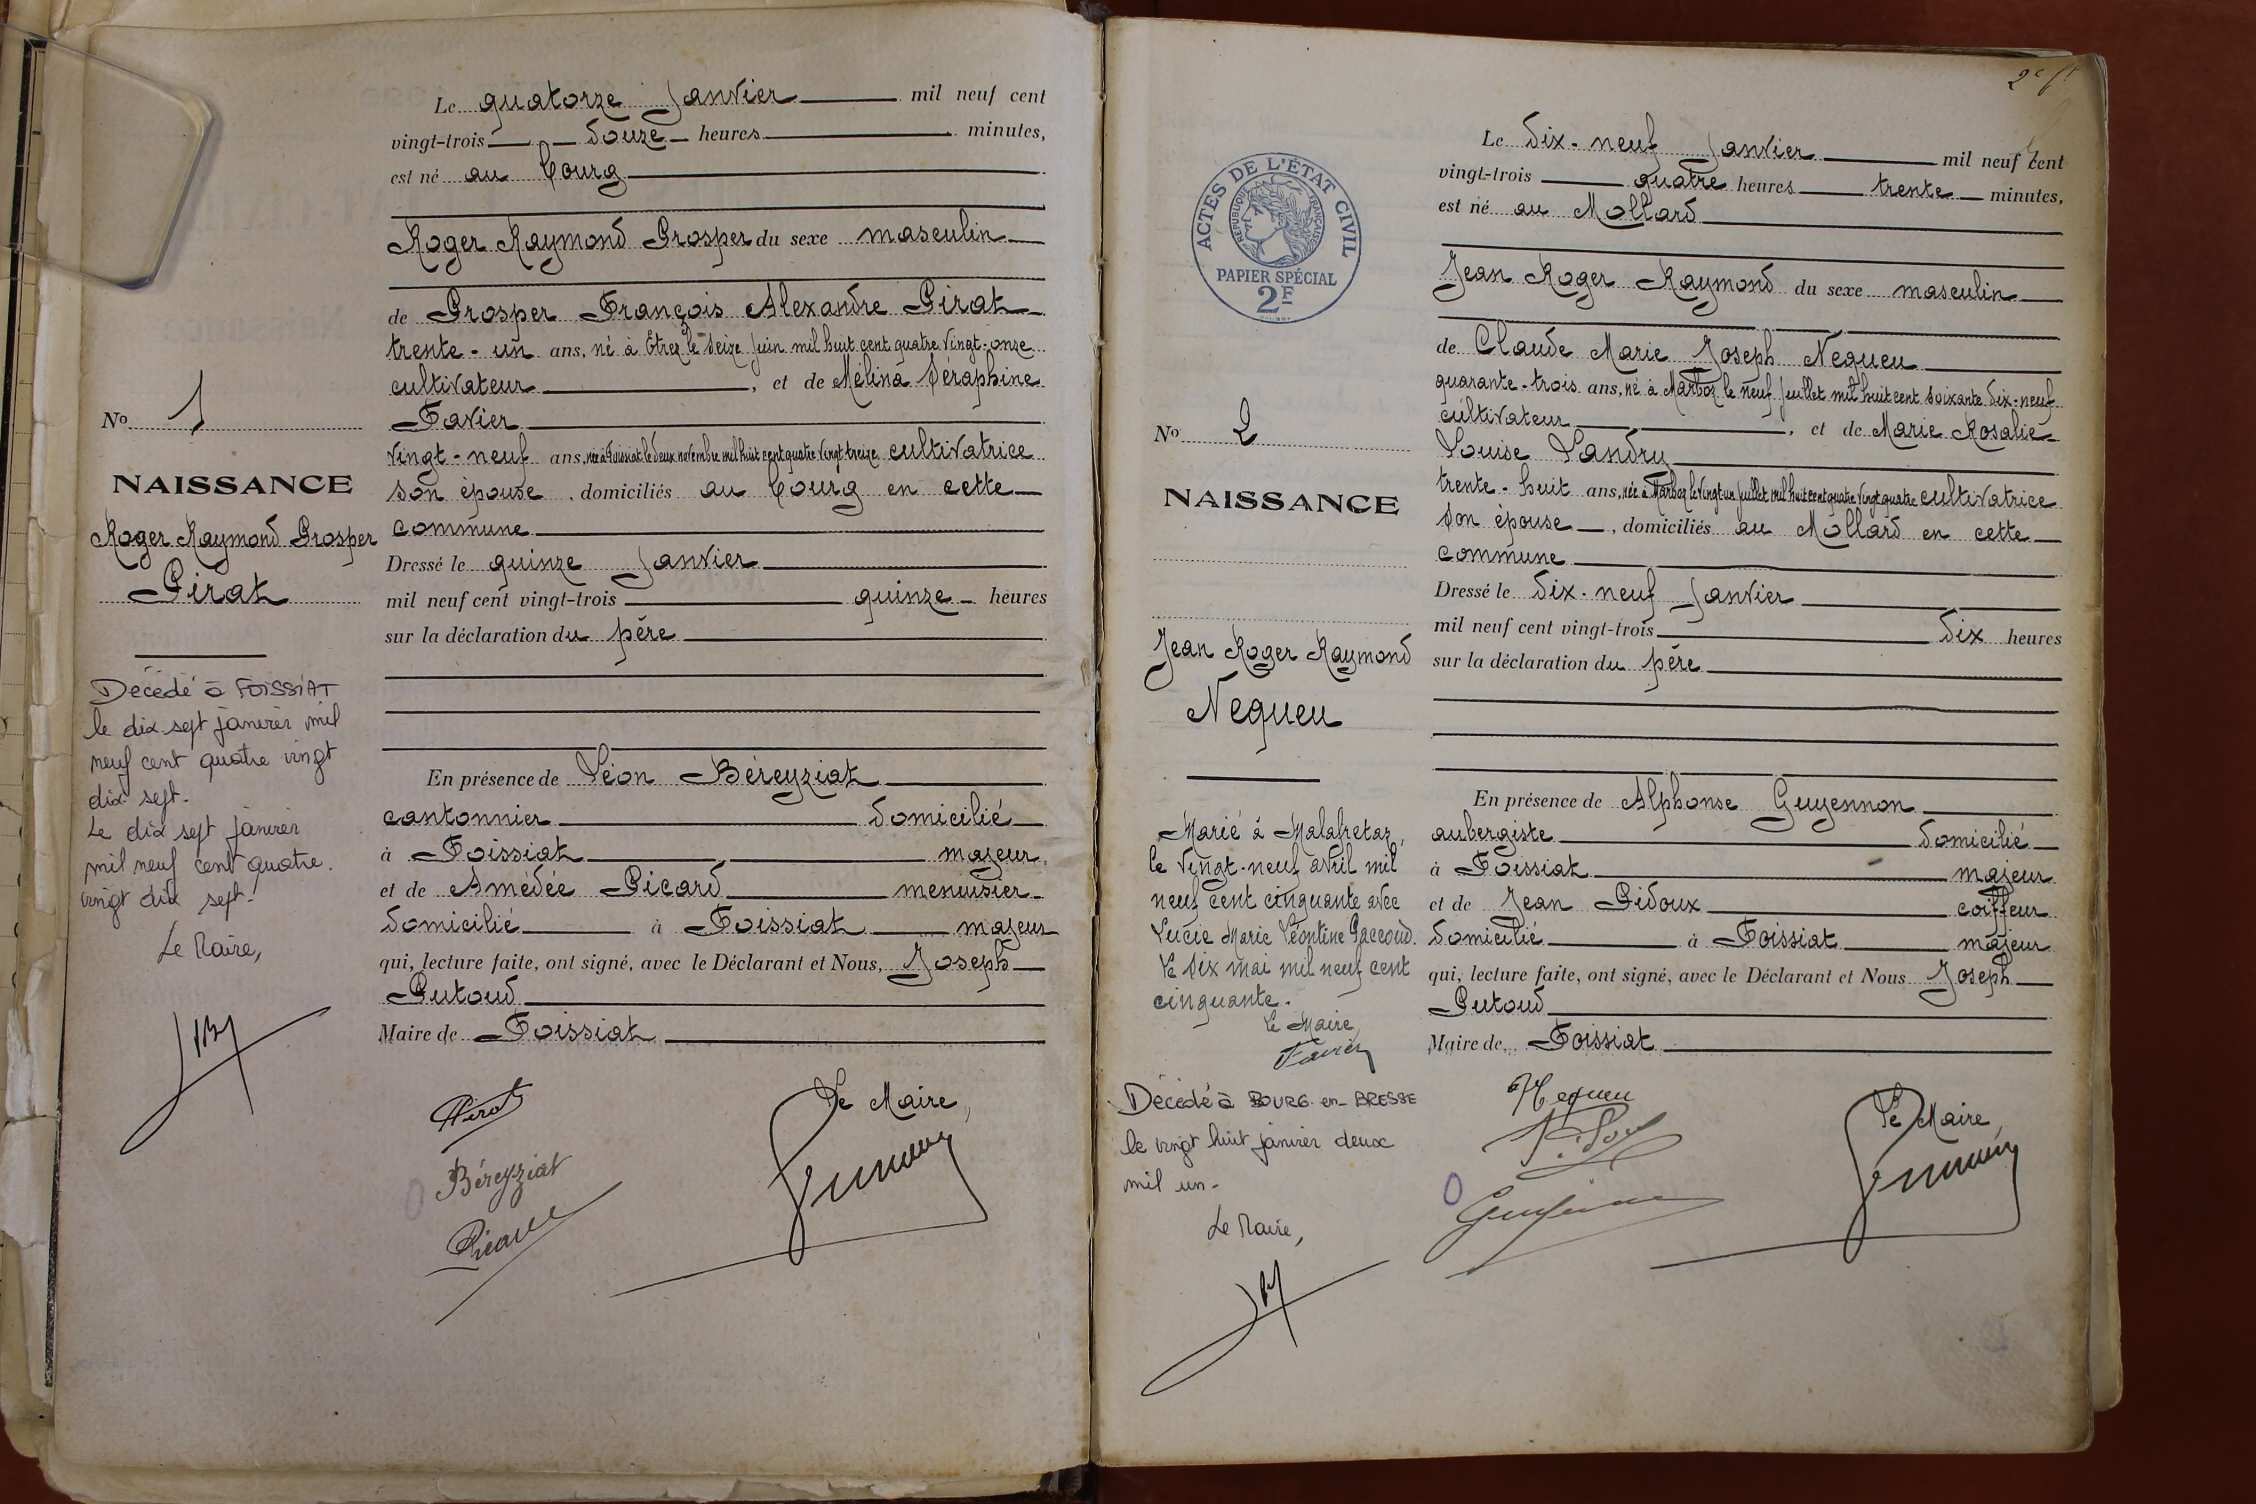 Le quatorze Janvier mil neuf cent
vingt-trois douze heures minutes,
est né au bourg
Roger Raymond Prosper du sexe masculin
de Prosper François Alexandre Pirat
trente-un ans, né à Etrez le seize juin mil huit cent quatre vingt-onze
cultivateur, et de Mélina Séraphine
Favier
vingt-neuf ans, née à Foissiat le deux novembre mil huit cent quatre vingt treize cultivatrice
son épouse, domiciliés au bourg en cette
commune
Dressé le quinze Janvier
mil neuf cent vingt-trois quinze heures
sur la déclaration du père
En présence de Léon Béreyziat
cantonnier domicilié
à Foissiat majeur,
et de Amédée Picard menuisier
domicilié à Foissiat majeur
qui, lecture faite, ont signé, avec le Déclarant et Nous, Joseph
Putoud
Maire de Foissiat
Le Maire,
Pirat
Béreyziat
Picard
No 1
NAISSANCE
Roger Raymond Prosper
Pirat
Décédé à FOISSIAT
le dix sept janvier mil
neuf cent quatre vingt
dix sept.
Le dix sept janvier
mil neuf cent quatre.
vingt dix sept.
Le Maire,
2e ft
ACTES DE L'ÉTAT CIVIL
RÉPUBLIQUE FRANÇAISE
PAPIER SPÉCIAL
2F
Le dix-neuf Janvier mil neuf cent
vingt-trois quatre heures trente minutes,
est né au Mollard
Jean Roger Raymond du sexe masculin
de Claude Marie Joseph Nequeu
quarante-trois ans, né à Marboz le neuf juillet mil huit cent soixante dix-neuf
cultivateur, et de Marie Rosalie
Louise Landru
trente-huit ans, née à Marboz le vingt un juillet mil huit cent quatre vingt quatre cultivatrice
son épouse, domiciliés au Mollard en cette
commune
Dressé le dix-neuf Janvier
mil neuf cent vingt-trois dix heures
sur la déclaration du père
En présence de Alphonse Guyennon
aubergiste domicilié
à Foissiat majeur
et de Jean Pidoux coiffeur
domicilié à Foissiat majeur
qui, lecture faite, ont signé, avec le Déclarant et Nous Joseph
Putoud
Maire de Foissiat
Nequeu
Le Maire,
No 2
NAISSANCE
Jean Roger Raymond
Nequeu
Marié à Malafretaz,
le vingt-neuf avril mil
neuf cent cinquante avec
Lucie Marie Léontine Paccoud.
Le dix mai mil neuf cent
cinquante.
Le Maire,
Favier
Décédé à BOURG-en-BRESSE
le vingt huit janvier deux
mil un-
Le Maire,